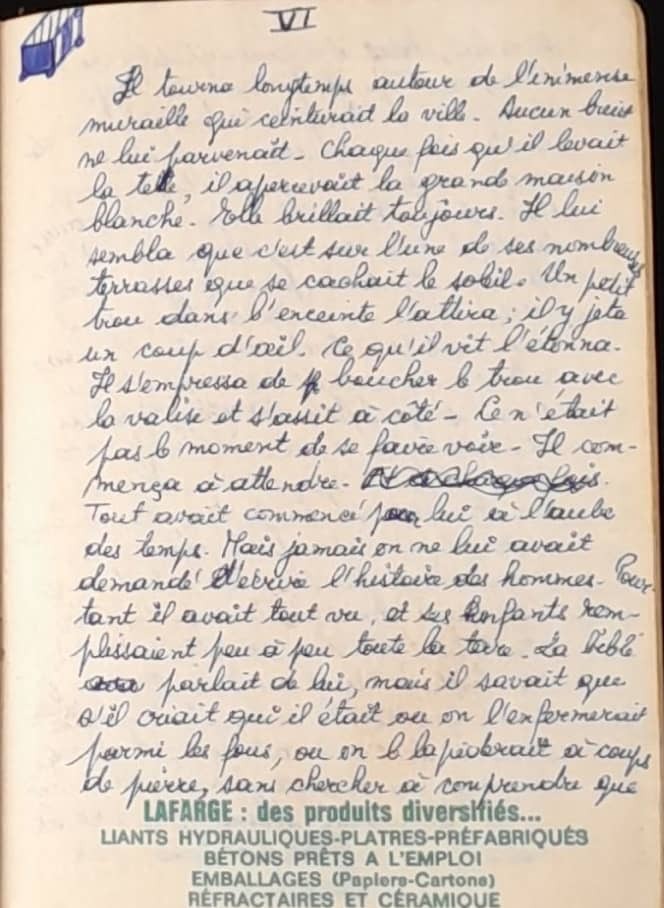 VI
Il tourna longtemps autour de l'immense
muraille qui ceinturait la ville. Aucun bruit
ne lui parvenait. Chaque fois qu'il levait
la tête, il apercevait la grande maison
blanche. Elle brillait toujours. Il lui
sembla que c'est sur l'une de ses nombreuses
terrasses que se cachait le soleil. Un petit
trou dans l'enceinte l'attira ; il y jeta
un coup d'œil. Ce qu'il vit l'étonna.
Il s'empressa de boucher le trou avec
la valise et s'assit à côté - Ce n'était
pas le moment de se faire voir - Il com-
mença à attendre.
Tout avait commencé pour lui à l'aube
des temps. Mais jamais on ne lui avait
demandé d'écrire l'histoire des hommes - Pour-
tant il avait tout vu, et ses enfants rem-
plissaient peu à peu toute la terre. La bible
parlait de lui, mais il savait que
s'il criait qui il était ou on l'enfermerait
parmi les fous, ou on le lapiderait à coups
de pierre, sans chercher à comprendre que
LAFARGE : des produits diversifiés...
LIANTS HYDRAULIQUES-PLATRES-PRÉFABRIQUÉS
BÉTONS PRÊTS A L'EMPLOI
EMBALLAGES (Papiers-Cartons)
RÉFRACTAIRES ET CÉRAMIQUE